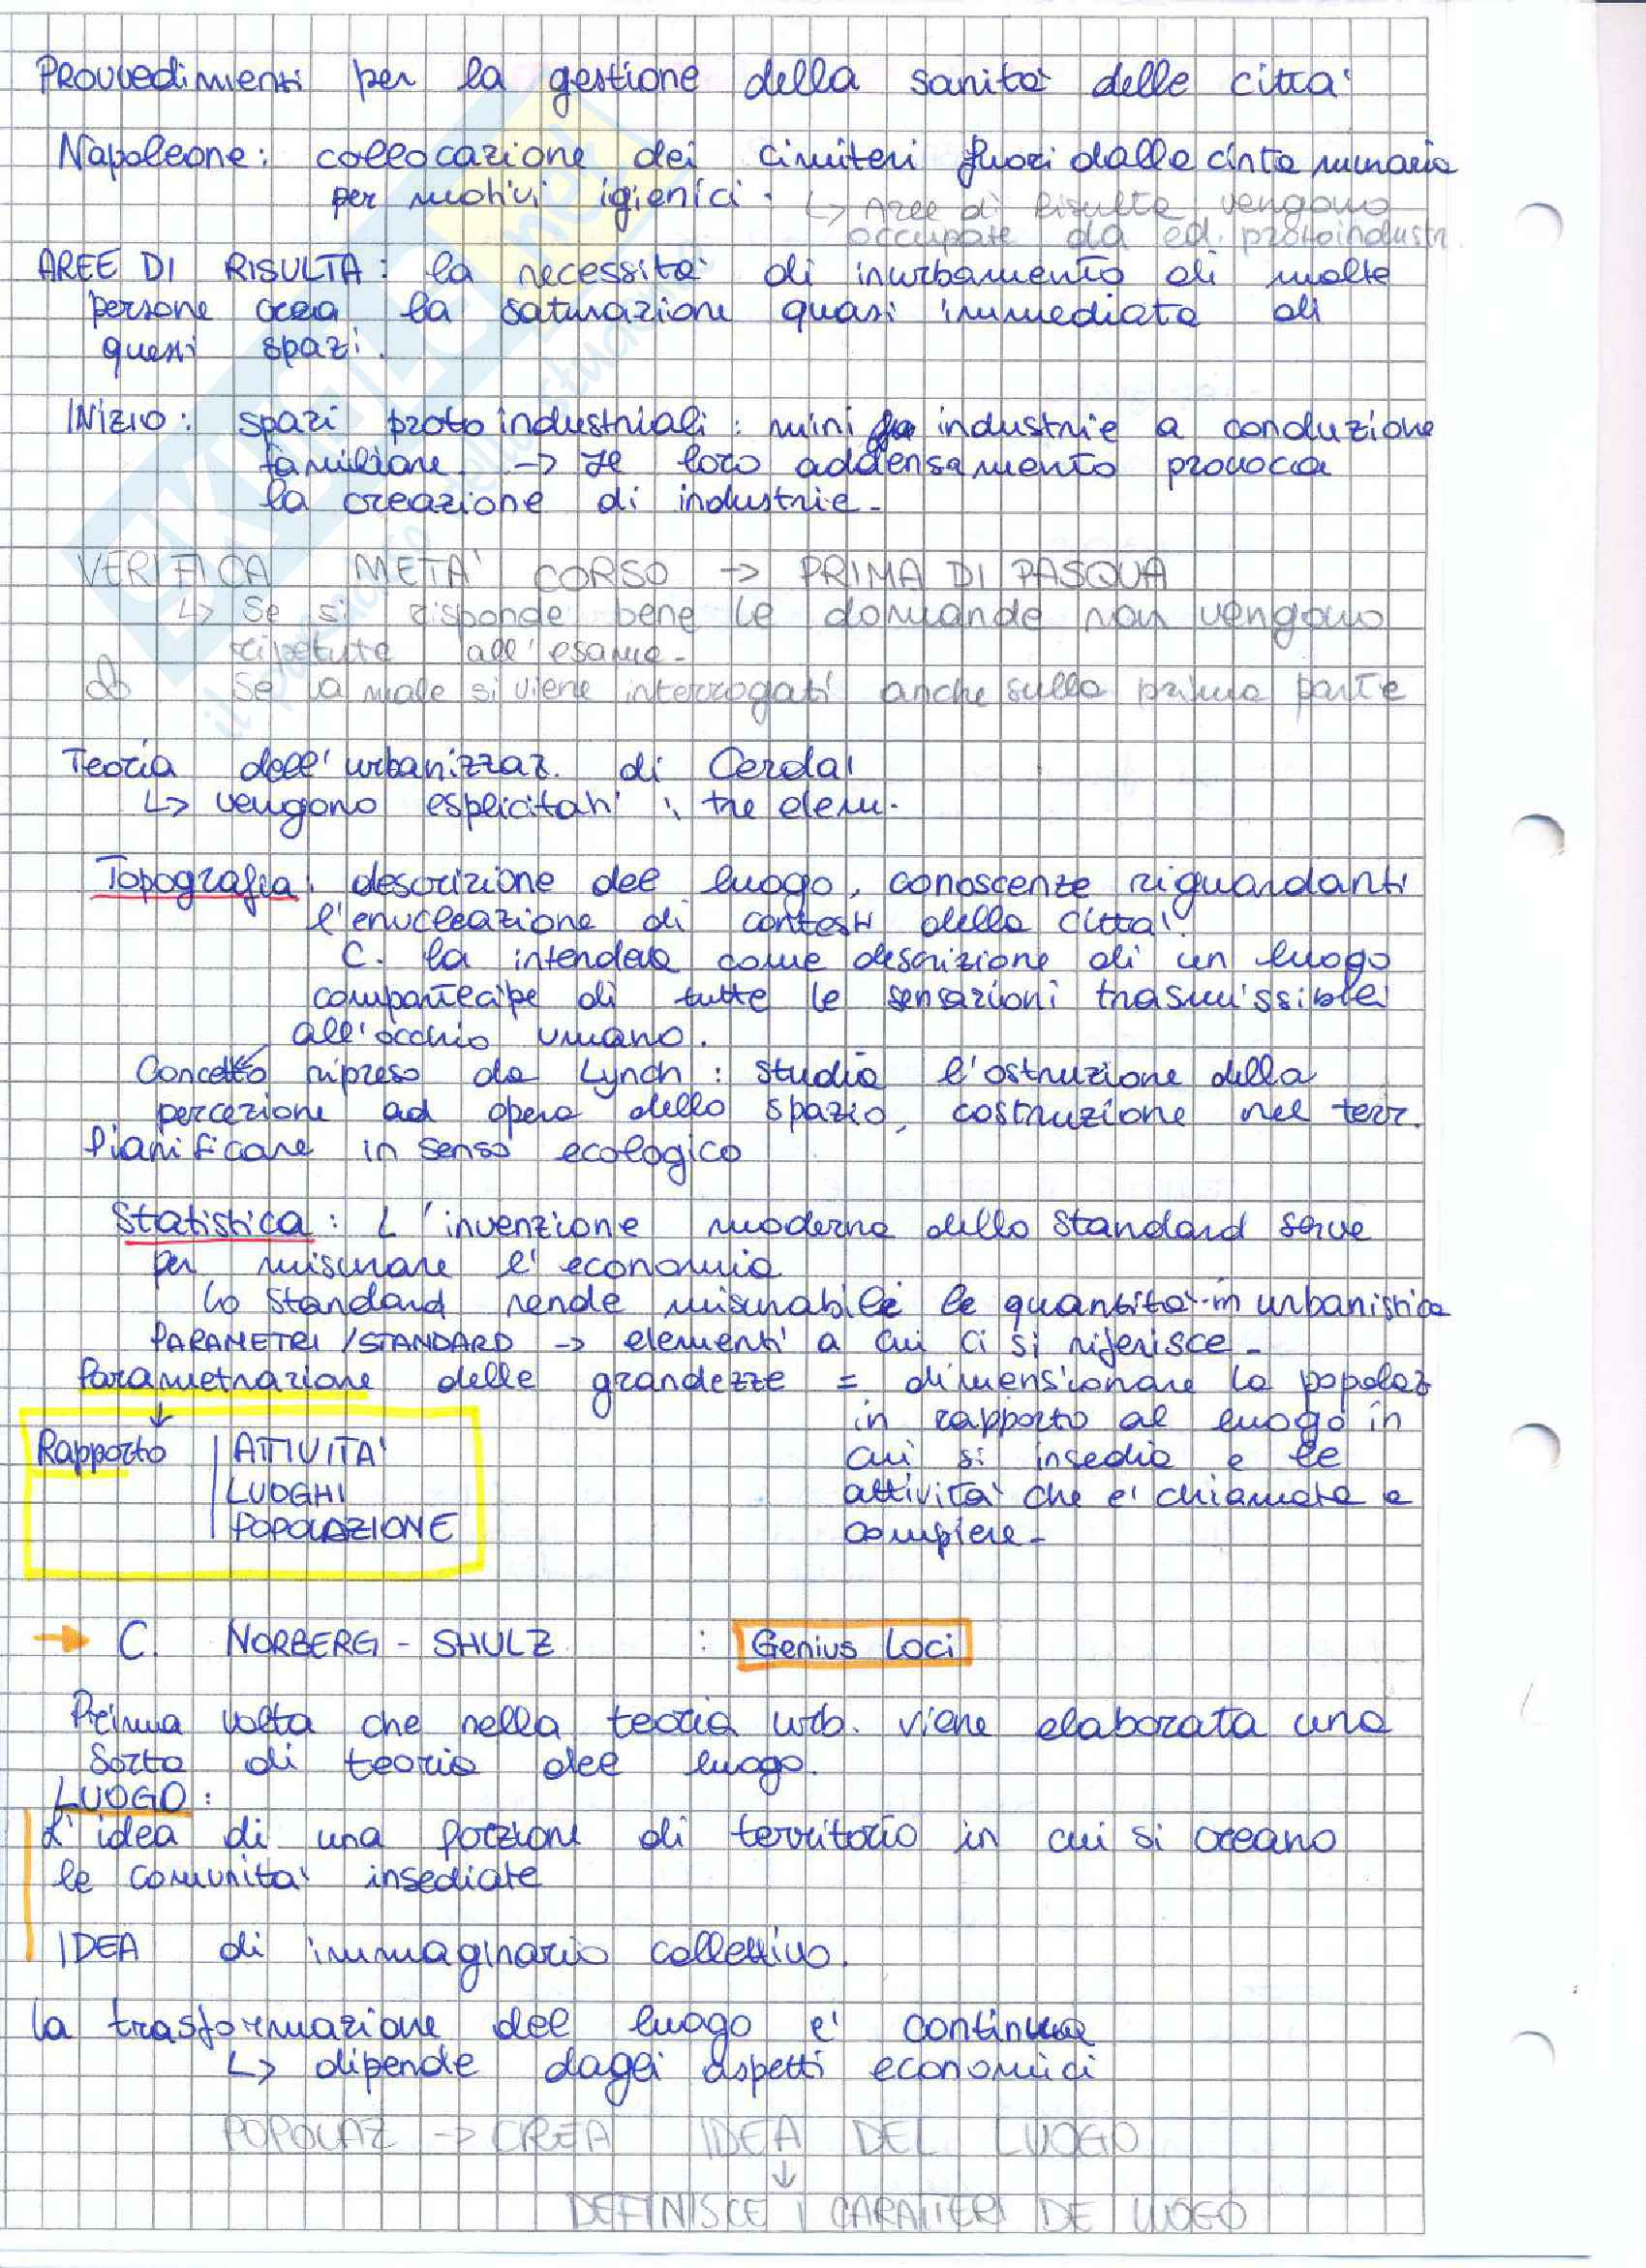 Provvedimenti per la gestione della sanità delle città
Napoleone: collocazione dei cimiteri fuori dalla cinta muraria
per motivi igienici.
↳ Aree di risulta vengono
occupate da ed. protoindustr.
AREE DI RISULTA: la necessità di inurbamento di molte
persone crea la saturazione quasi immediata di
questi spazi.
INIZIO: spazi proto industriali: mini industrie a conduzione
familiare → Il loro addensamento provoca
la creazione di industrie.
VERIFICA META' CORSO → PRIMA DI PASQUA
↳ Se si risponde bene le domande non vengono
ripetute all'esame.
Se va male si viene interrogati anche sulla prima parte
Teoria dell'urbanizzaz. di Cerdà
↳ vengono esplicitati i tre elem.
Topografia: descrizione del luogo, conoscenze riguardanti
l'enucleazione di contesti della città.
C. la intendeva come descrizione di un luogo
compartecipe di tutte le sensazioni trasmissibili
all'occhio umano.
Concetto ripreso da Lynch: studia l'ostruzione della
percezione ad opera dello spazio, costruzione nel terr.
Pianificare in senso ecologico
Statistica: L'invenzione moderna dello standard serve
per misurare l'economia
Lo standard rende misurabile le quantità in urbanistica
PARAMETRI/STANDARD → elementi a cui ci si riferisce.
Parametrazione delle grandezze = dimensionare la popolaz
in rapporto al luogo in
cui si insedia e le
attività che è chiamata a
compiere.
↓
Rapporto | ATTIVITA'
LUOGHI
POPOLAZIONE
→ C. NORBERG-SHULZ : Genius Loci
Prima volta che nella teoria urb. viene elaborata una
sorta di teoria del luogo.
LUOGO:
L'idea di una porzione di territorio in cui si creano
le comunità insediate
IDEA di immaginario collettivo.
La trasformazione del luogo è continua
↳ dipende dagli aspetti economici
POPOLAZ → CREA IDEA DEL LUOGO
↓
DEFINISCE I CARATTERI DE LUOGO